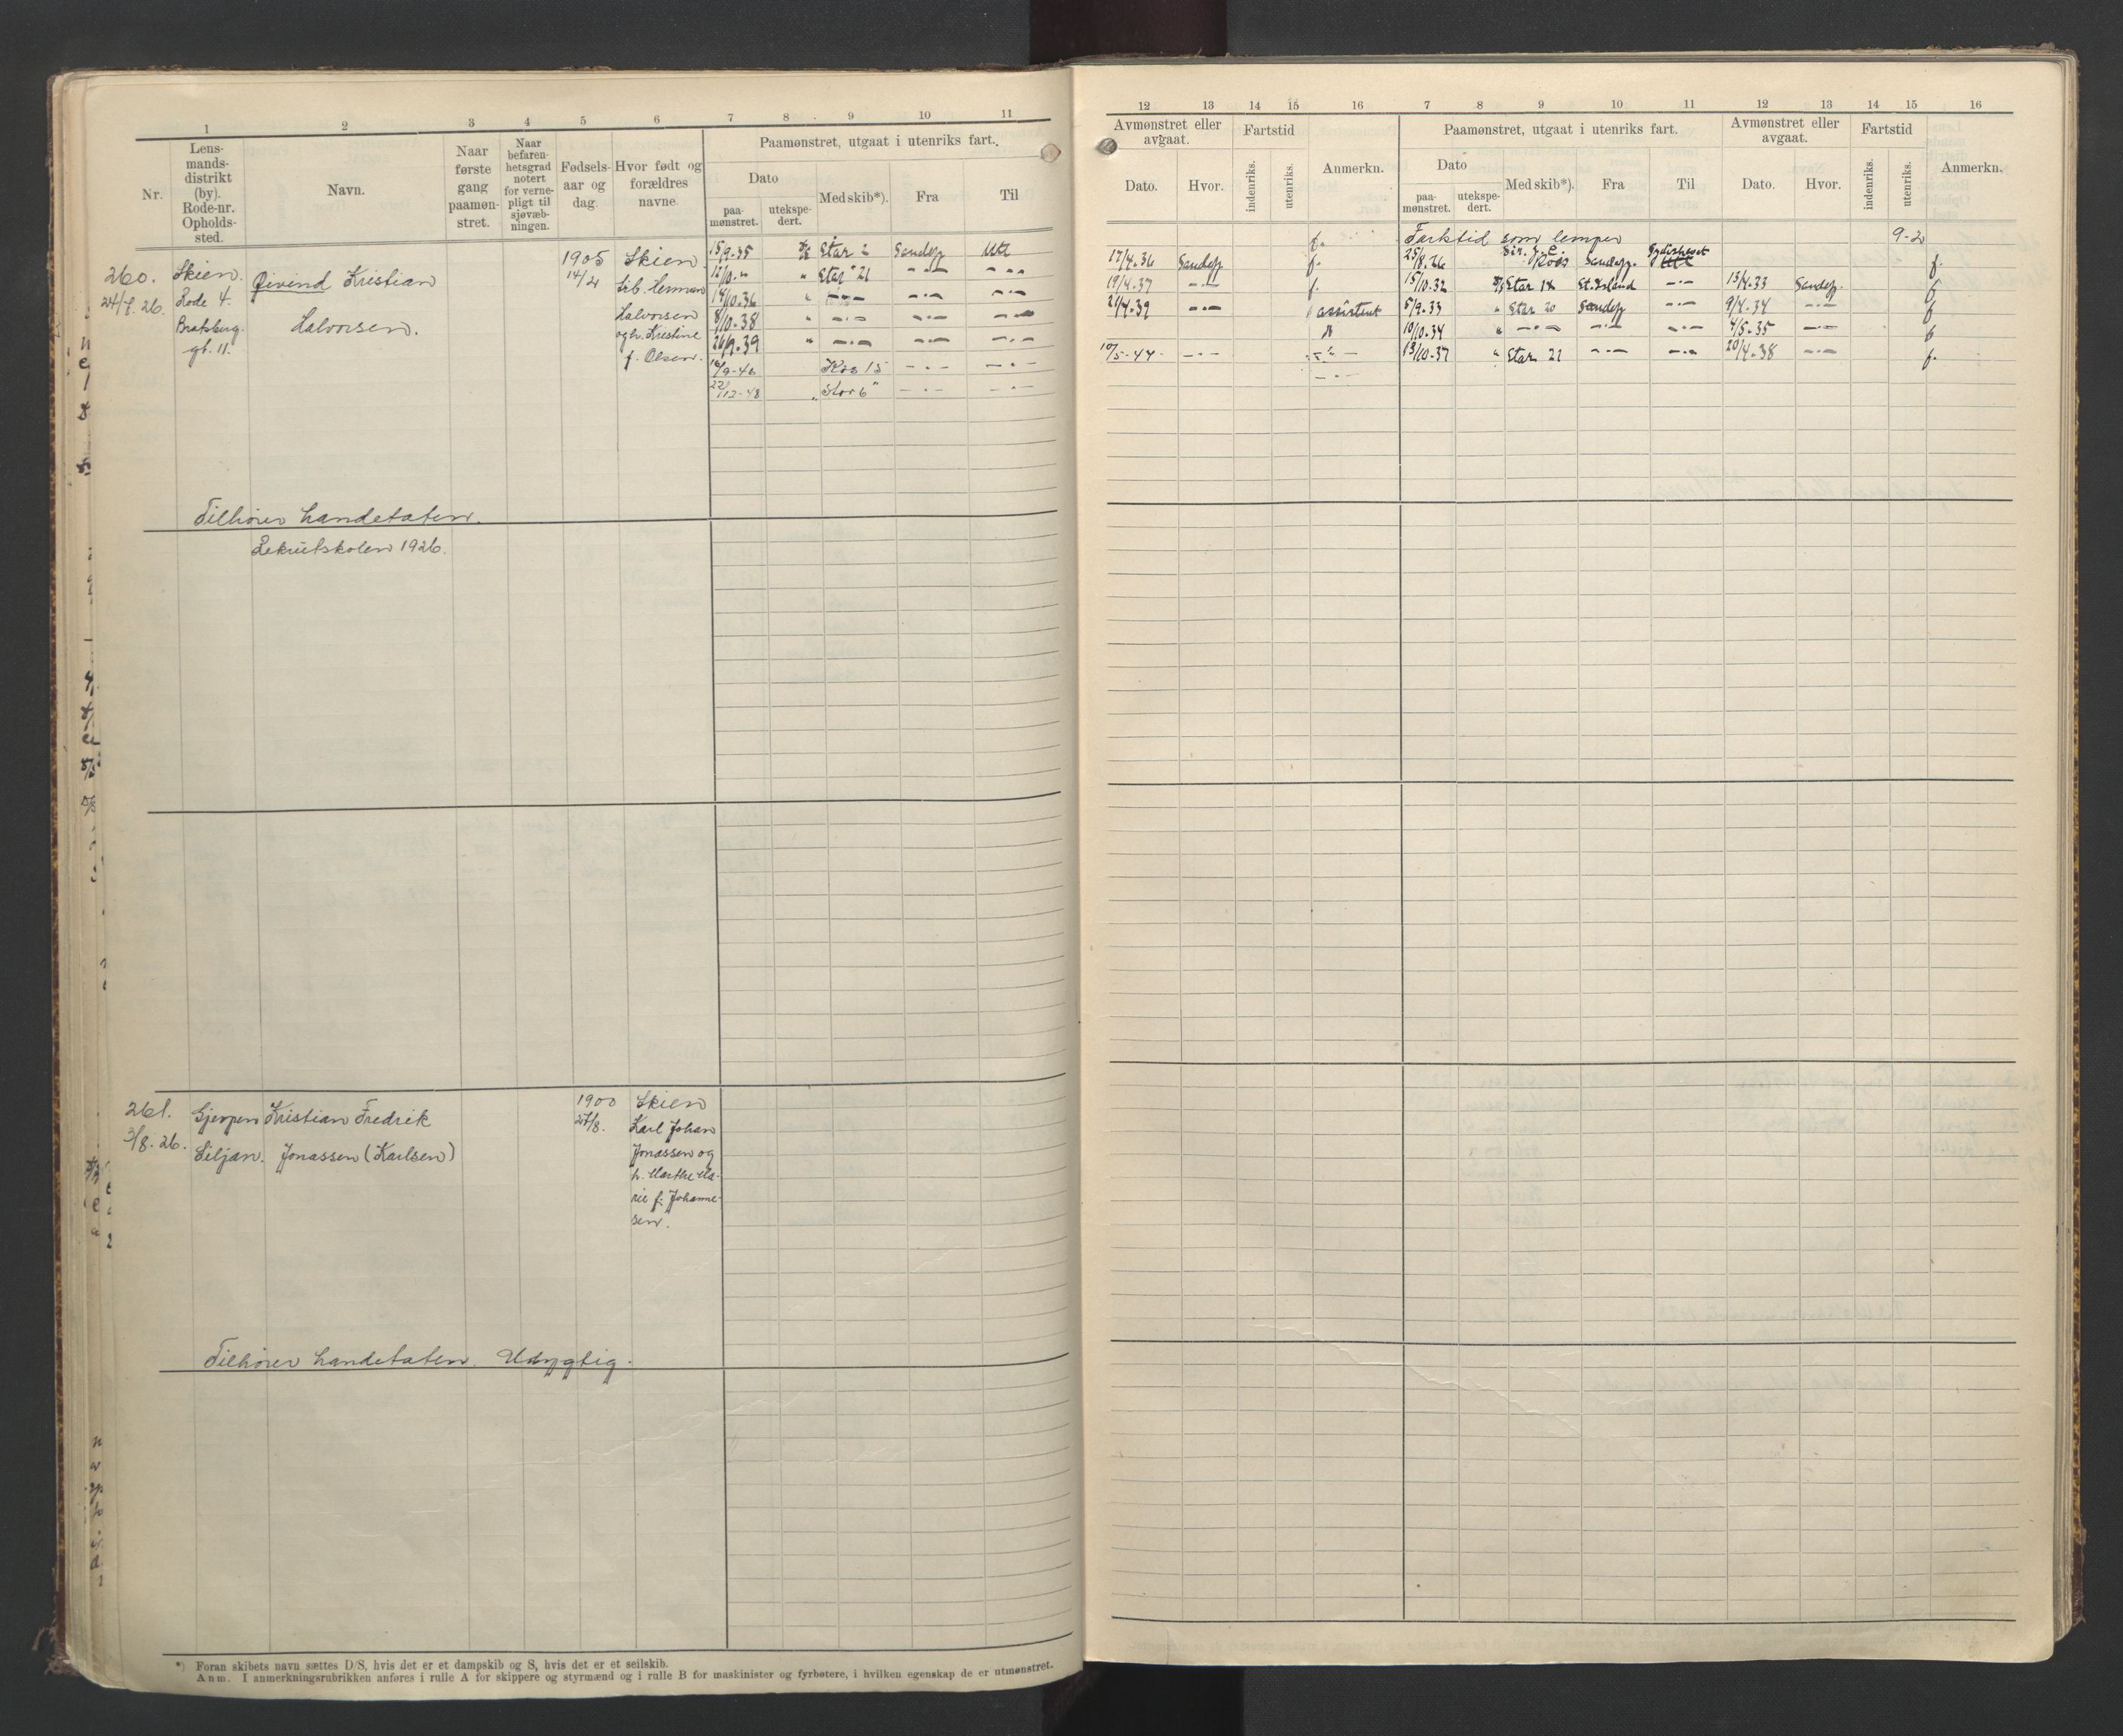 1 2 3 4 5 6 7 8 9 10 11
Nr.
Lens-
mands-
distrikt
(by).
Rode-nr.
Opholds-
sted.
Navn.
Naar
første
gang
paamøn-
stret.
Naar
befaren-
hetsgrad
notert
for verne-
pligt til
sjøvæb-
ningen.
Fødsels-
aar og
dag.
Hvor født og
forældres
navne.
Paamønstret, utgaat i utenriks fart.
Dato
paa-
mønstret.
utekspe-
dert.
Med skib*).
Fra
Til
260.
24/8. 26.
Skien.
Rode 4.
Bratsberg.
gt. 11.
Øivind Kristian
Halvorsen.
1905
14/2
Skien
arb. Herman
Halvorsen
og h. Kristine
f. Olsen.
15/9-35 D/S Star 2 Sandefj Utl
12/10-" " Star 21 -·- -·-
14/10.36 " -·- -·- -·-
8/10-38 " -·- -·- -·-
26/9.39 " -·- -·- -·-
/9-46 Kos 15 -·- -·-
22/12-48 "Star 6" -·- -·-
Tilhører Landetaten.
Rekrutskolen 1926.
261.
3/8. 26.
Gjerpen
Siljan.
Kristian Fredrik
Jonassen (Karlsen)
1900
27/8.
Skien
Karl Johan
Jonassen og
h. Marthe Ma-
rie f. Johanne-
sen.
Tilhører Landetaten. Udygtig.
*) Foran skibets navn sættes D/S, hvis det er et dampskib og S, hvis det er et seilskib.
Anm. I anmerkningsrubrikken anføres i rulle A for skippere og styrmænd og i rulle B for maskinister og fyrbøtere, i hvilken egenskap de er utmønstret.
12 13 14 15 16 7 8 9 10 11 12 13 14 15 16
Avmønstret eller
avgaat.
Dato.
Hvor.
Fartstid
indenriks.
utenriks.
Anmerkn.
Paamønstret, utgaat i utenriks fart.
Dato
paa-
mønstret.
utekspe-
dert.
Med skib*).
Fra
Til
Avmønstret eller
avgaat.
Dato.
Hvor.
Fartstid
indenriks.
utenriks.
Anmerkn.
f.
17/4.36 Sandefj f.
19/4.37 -·- f.
21/4.39 -·- assistent
10/5-47 -·- -"-
-·-
Fartstid som lemper 9-2
25/8.26 Sir J. E. Roos Sandefj. Sydishavet f.
15/10.32 D/S Star 18 St. Island -·- 13/4.33 Sandefj. f
5/9.33 " Star 20 Sandefj -·- 9/4.34 -·- f
10/10.34 " -·- -·- -·- 4/5.35 -·- f
13/10.37 " Star 21 -·- -·- 20/4.38 -·- f.